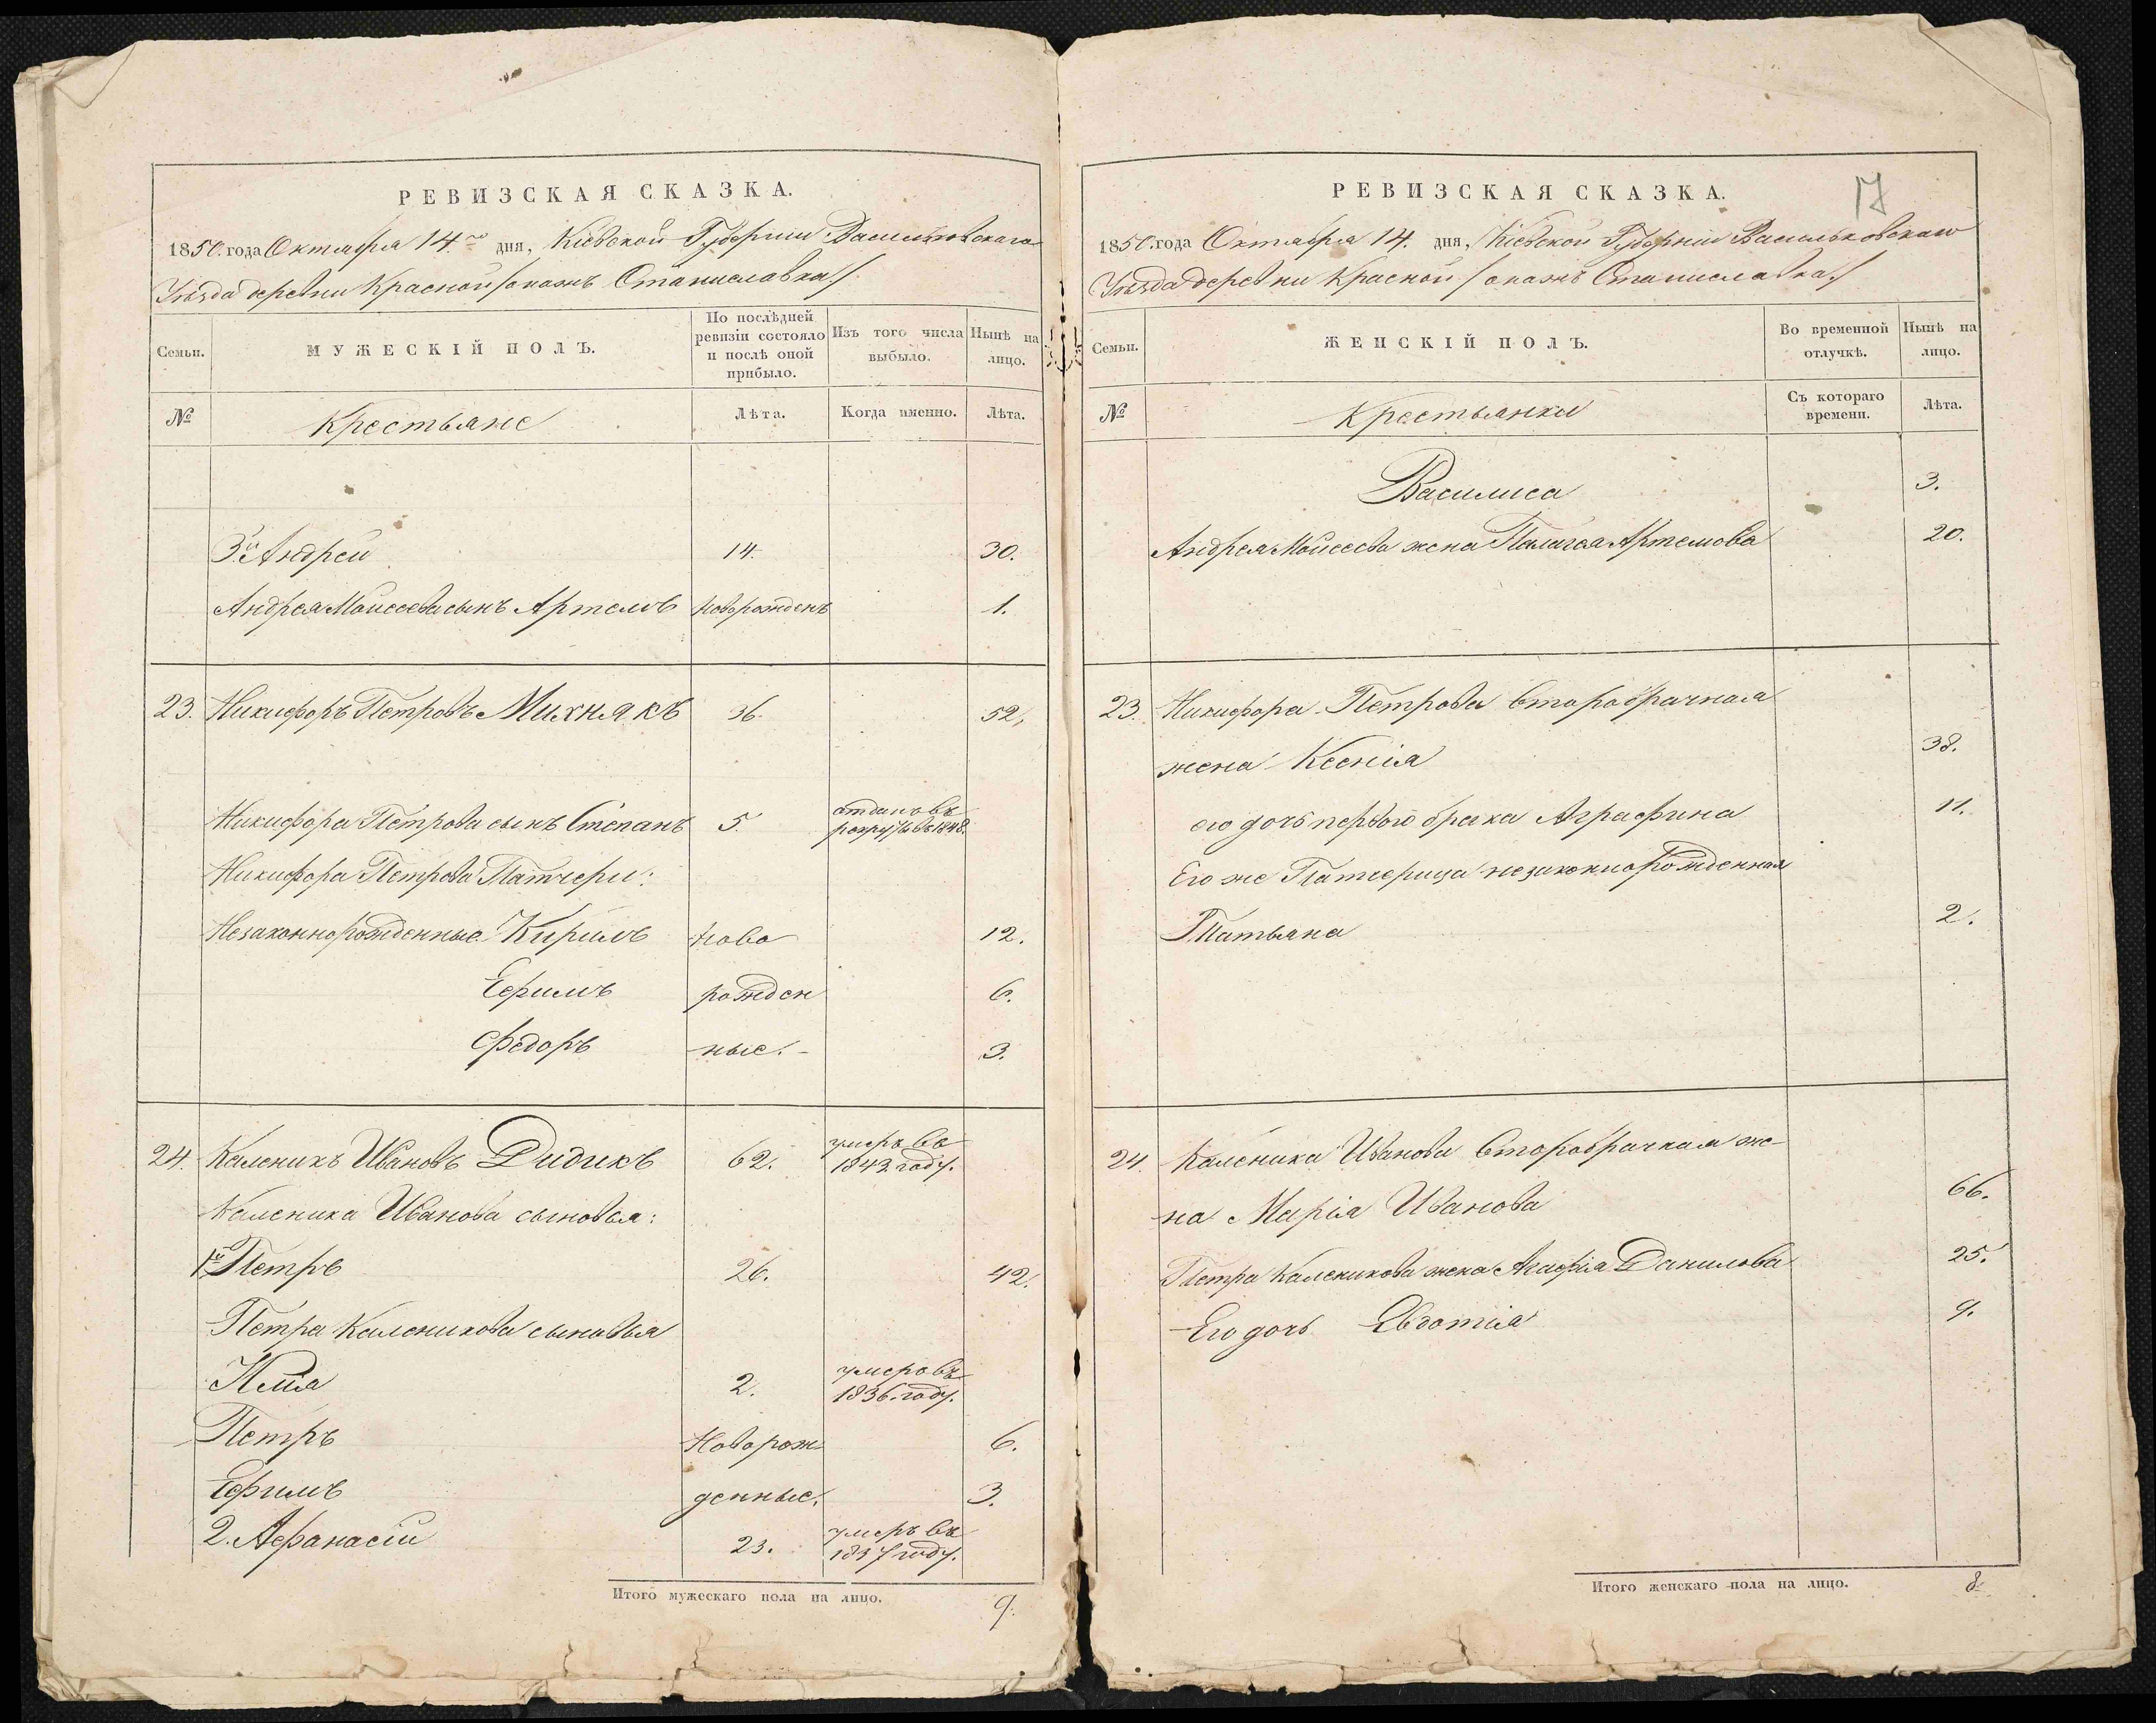 РЕВИЗСКАЯ СКАЗКА.
1850 года Октября 14го дня, Кіевской Губерніи Васильковскаго
Уѣзда деревни Красной /онажъ Станиславка/.
Семьи.
МУЖЕСКІЙ ПОЛЪ.
По послѣдней ревизіи состояло и послѣ оной прибыло.
Изъ того числа выбыло.
Нынѣ на лицо.
№ Крестьяне Лѣта. Когда именно. Лѣта.
3й Андрей 14. 30.
Андрея Моисеева сынъ Артемъ новорожденъ 1.
23. Никифоръ Петровъ Михнякъ 36. 52.
Никифора Петрова сынъ Степанъ 5. отданъ въ рекруты въ 1848.
Никифора Петрова Патчери:
Незаконнорожденные Кирилъ ново 12.
Ефимъ рожден 6.
Федоръ ные. 3.
24. Каленикъ Ивановъ Дидикъ 62. умеръ въ 1843 году.
Каленика Иванова сыновья:
1й Петръ 26. 42.
Петра Каленикова сыновья
Илія 2. умеръ въ 1836. году.
Петръ Новорож 6.
Ефимъ денные. 3.
2. Афанасій 23. умеръ въ 1837 году.
Итого мужескаго пола на лицо. 9.
17
РЕВИЗСКАЯ СКАЗКА.
1850 года Октября 14. дня, Кіевской Губерніи Васильковскаго
Уѣзда деревни Красной /онажъ Станиславка/
Семьи.
ЖЕНСКІЙ ПОЛЪ.
Во временной отлучкѣ.
Нынѣ на лицо.
№ Крестьянки Съ котораго времени. Лѣта.
Василиса 3.
Андрея Моисеева жена Палагея Артемова 20.
23. Никифора Петрова второбрачная
жена Ксенія 38.
его дочь первого брака Аграфина 11.
Его же Патчерица незаконнорожденная
Татьяна 2.
24. Каленика Иванова второбрачная же-
на Марія Иванова 66.
Петра Каленикова жена Агафія Данилова 25.
Его дочь Евдотія 9.
Итого женскаго пола на лицо. 8.